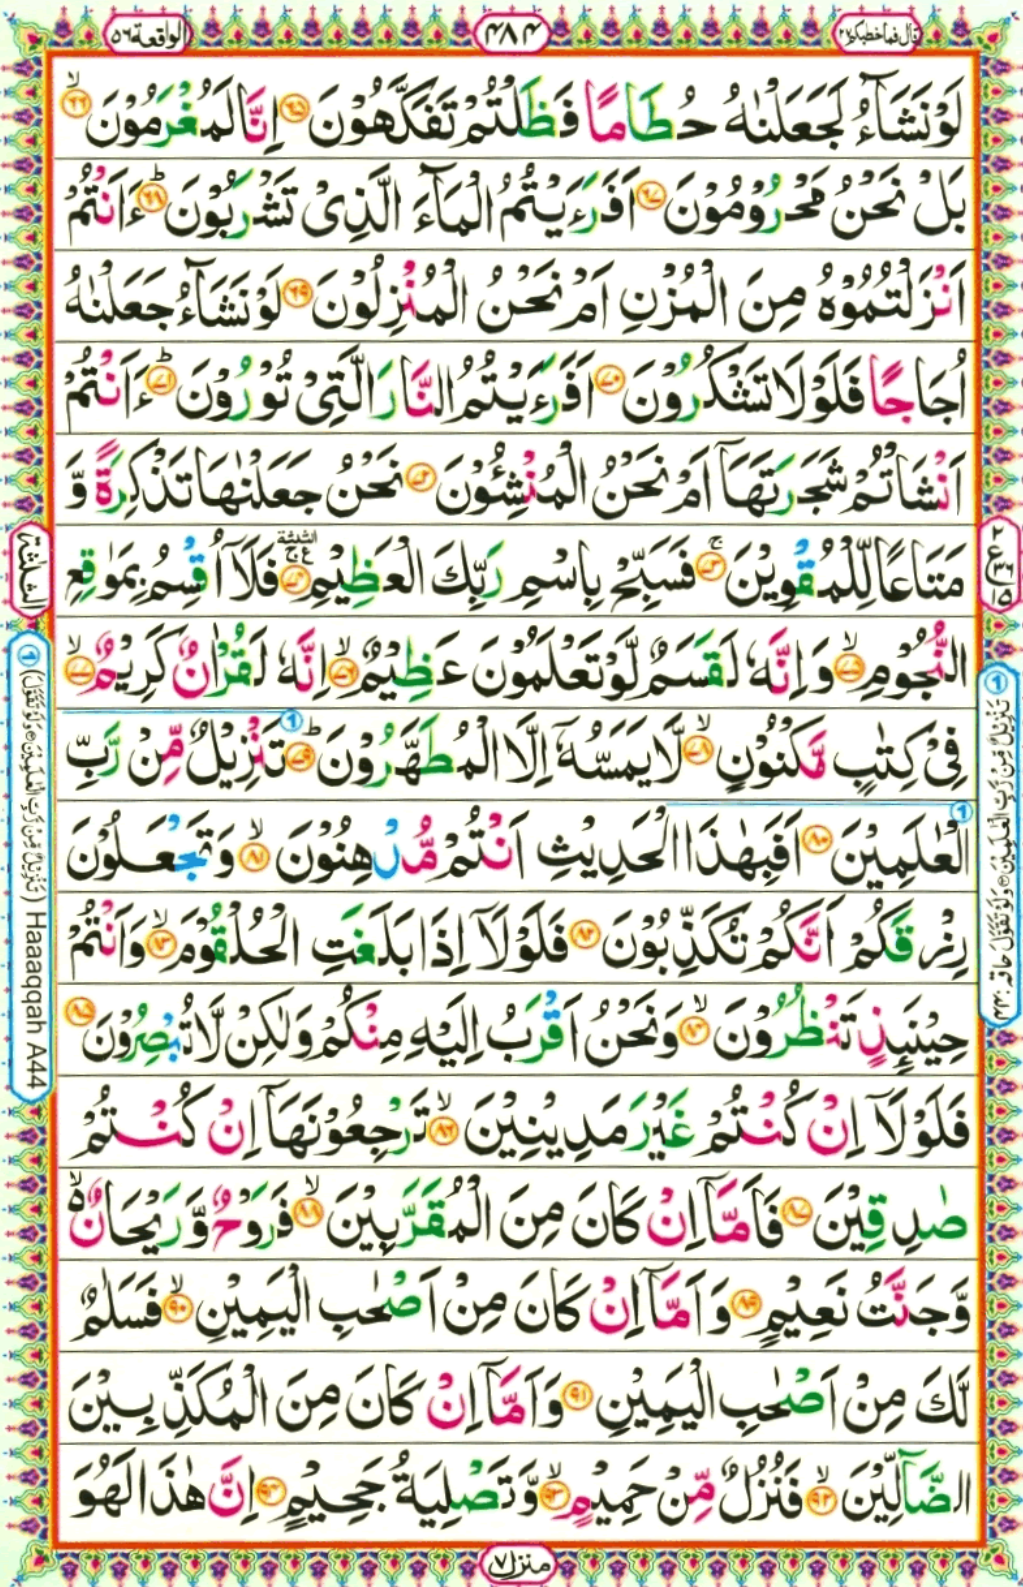 قال فما خطبکم ۲۷
۴۸۴
الواقعة ۵۶
لَوْ نَشَآءُ لَجَعَلْنٰهُ حُطَامًا فَظَلْتُمْ تَفَكَّهُوْنَ ۶۵ اِنَّا لَمُغْرَمُوْنَ ۶۶
بَلْ نَحْنُ مَحْرُوْمُوْنَ ۶۷ اَفَرَءَيْتُمُ الْمَآءَ الَّذِیْ تَشْرَبُوْنَ ۶۸ ءَاَنْتُمْ
اَنْزَلْتُمُوْهُ مِنَ الْمُزْنِ اَمْ نَحْنُ الْمُنْزِلُوْنَ ۶۹ لَوْ نَشَآءُ جَعَلْنٰهُ
اُجَاجًا فَلَوْ لَا تَشْكُرُوْنَ ۷۰ اَفَرَءَيْتُمُ النَّارَ الَّتِیْ تُوْرُوْنَ ۷۱ ءَاَنْتُمْ
اَنْشَاْتُمْ شَجَرَتَهَاۤ اَمْ نَحْنُ الْمُنْشِئُوْنَ ۷۲ نَحْنُ جَعَلْنٰهَا تَذْكِرَةً وَّ
مَتَاعًا لِّلْمُقْوِيْنَ ۷۳ فَسَبِّحْ بِاسْمِ رَبِّكَ الْعَظِيْمِ ۷۴ فَلَاۤ اُقْسِمُ بِمَوٰقِعِ
النُّجُوْمِ ۷۵ وَ اِنَّهٗ لَقَسَمٌ لَّوْ تَعْلَمُوْنَ عَظِيْمٌ ۷۶ اِنَّهٗ لَقُرْاٰنٌ كَرِيْمٌ ۷۷
فِیْ كِتٰبٍ مَّكْنُوْنٍ ۷۸ لَّا يَمَسُّهٗۤ اِلَّا الْمُطَهَّرُوْنَ ۷۹ تَنْزِيْلٌ مِّنْ رَّبِّ
الْعٰلَمِيْنَ ۸۰ اَفَبِهٰذَا الْحَدِيْثِ اَنْتُمْ مُّدْهِنُوْنَ ۸۱ وَ تَجْعَلُوْنَ
رِزْقَكُمْ اَنَّكُمْ تُكَذِّبُوْنَ ۸۲ فَلَوْ لَاۤ اِذَا بَلَغَتِ الْحُلْقُوْمَ ۸۳ وَ اَنْتُمْ
حِيْنَئِذٍ تَنْظُرُوْنَ ۸۴ وَ نَحْنُ اَقْرَبُ اِلَيْهِ مِنْكُمْ وَ لٰكِنْ لَّا تُبْصِرُوْنَ ۸۵
فَلَوْ لَاۤ اِنْ كُنْتُمْ غَيْرَ مَدِيْنِيْنَ ۸۶ تَرْجِعُوْنَهَاۤ اِنْ كُنْتُمْ
صٰدِقِيْنَ ۸۷ فَاَمَّاۤ اِنْ كَانَ مِنَ الْمُقَرَّبِيْنَ ۸۸ فَرَوْحٌ وَّ رَيْحَانٌ
وَّ جَنَّتُ نَعِيْمٍ ۸۹ وَ اَمَّاۤ اِنْ كَانَ مِنْ اَصْحٰبِ الْيَمِيْنِ ۹۰ فَسَلٰمٌ
لَّكَ مِنْ اَصْحٰبِ الْيَمِيْنِ ۹۱ وَ اَمَّاۤ اِنْ كَانَ مِنَ الْمُكَذِّبِيْنَ
الضَّآلِّيْنَ ۹۲ فَنُزُلٌ مِّنْ حَمِيْمٍ ۹۳ وَّ تَصْلِيَةُ جَحِيْمٍ ۹۴ اِنَّ هٰذَا لَهُوَ
۲
ع ۳۶
۱۵
الثلثة
۱ تَنْزِيْلٌ مِّنْ رَّبِّ الْعٰلَمِيْنَ وَلَوْ تَقَوَّلَ حاقه:
۱ (تَنْزِيْلٌ مِّنْ رَّبِّ الْعٰلَمِيْنَ وَلَوْ تَقَوَّلَ) Haaaqqah A44
منزل ۷